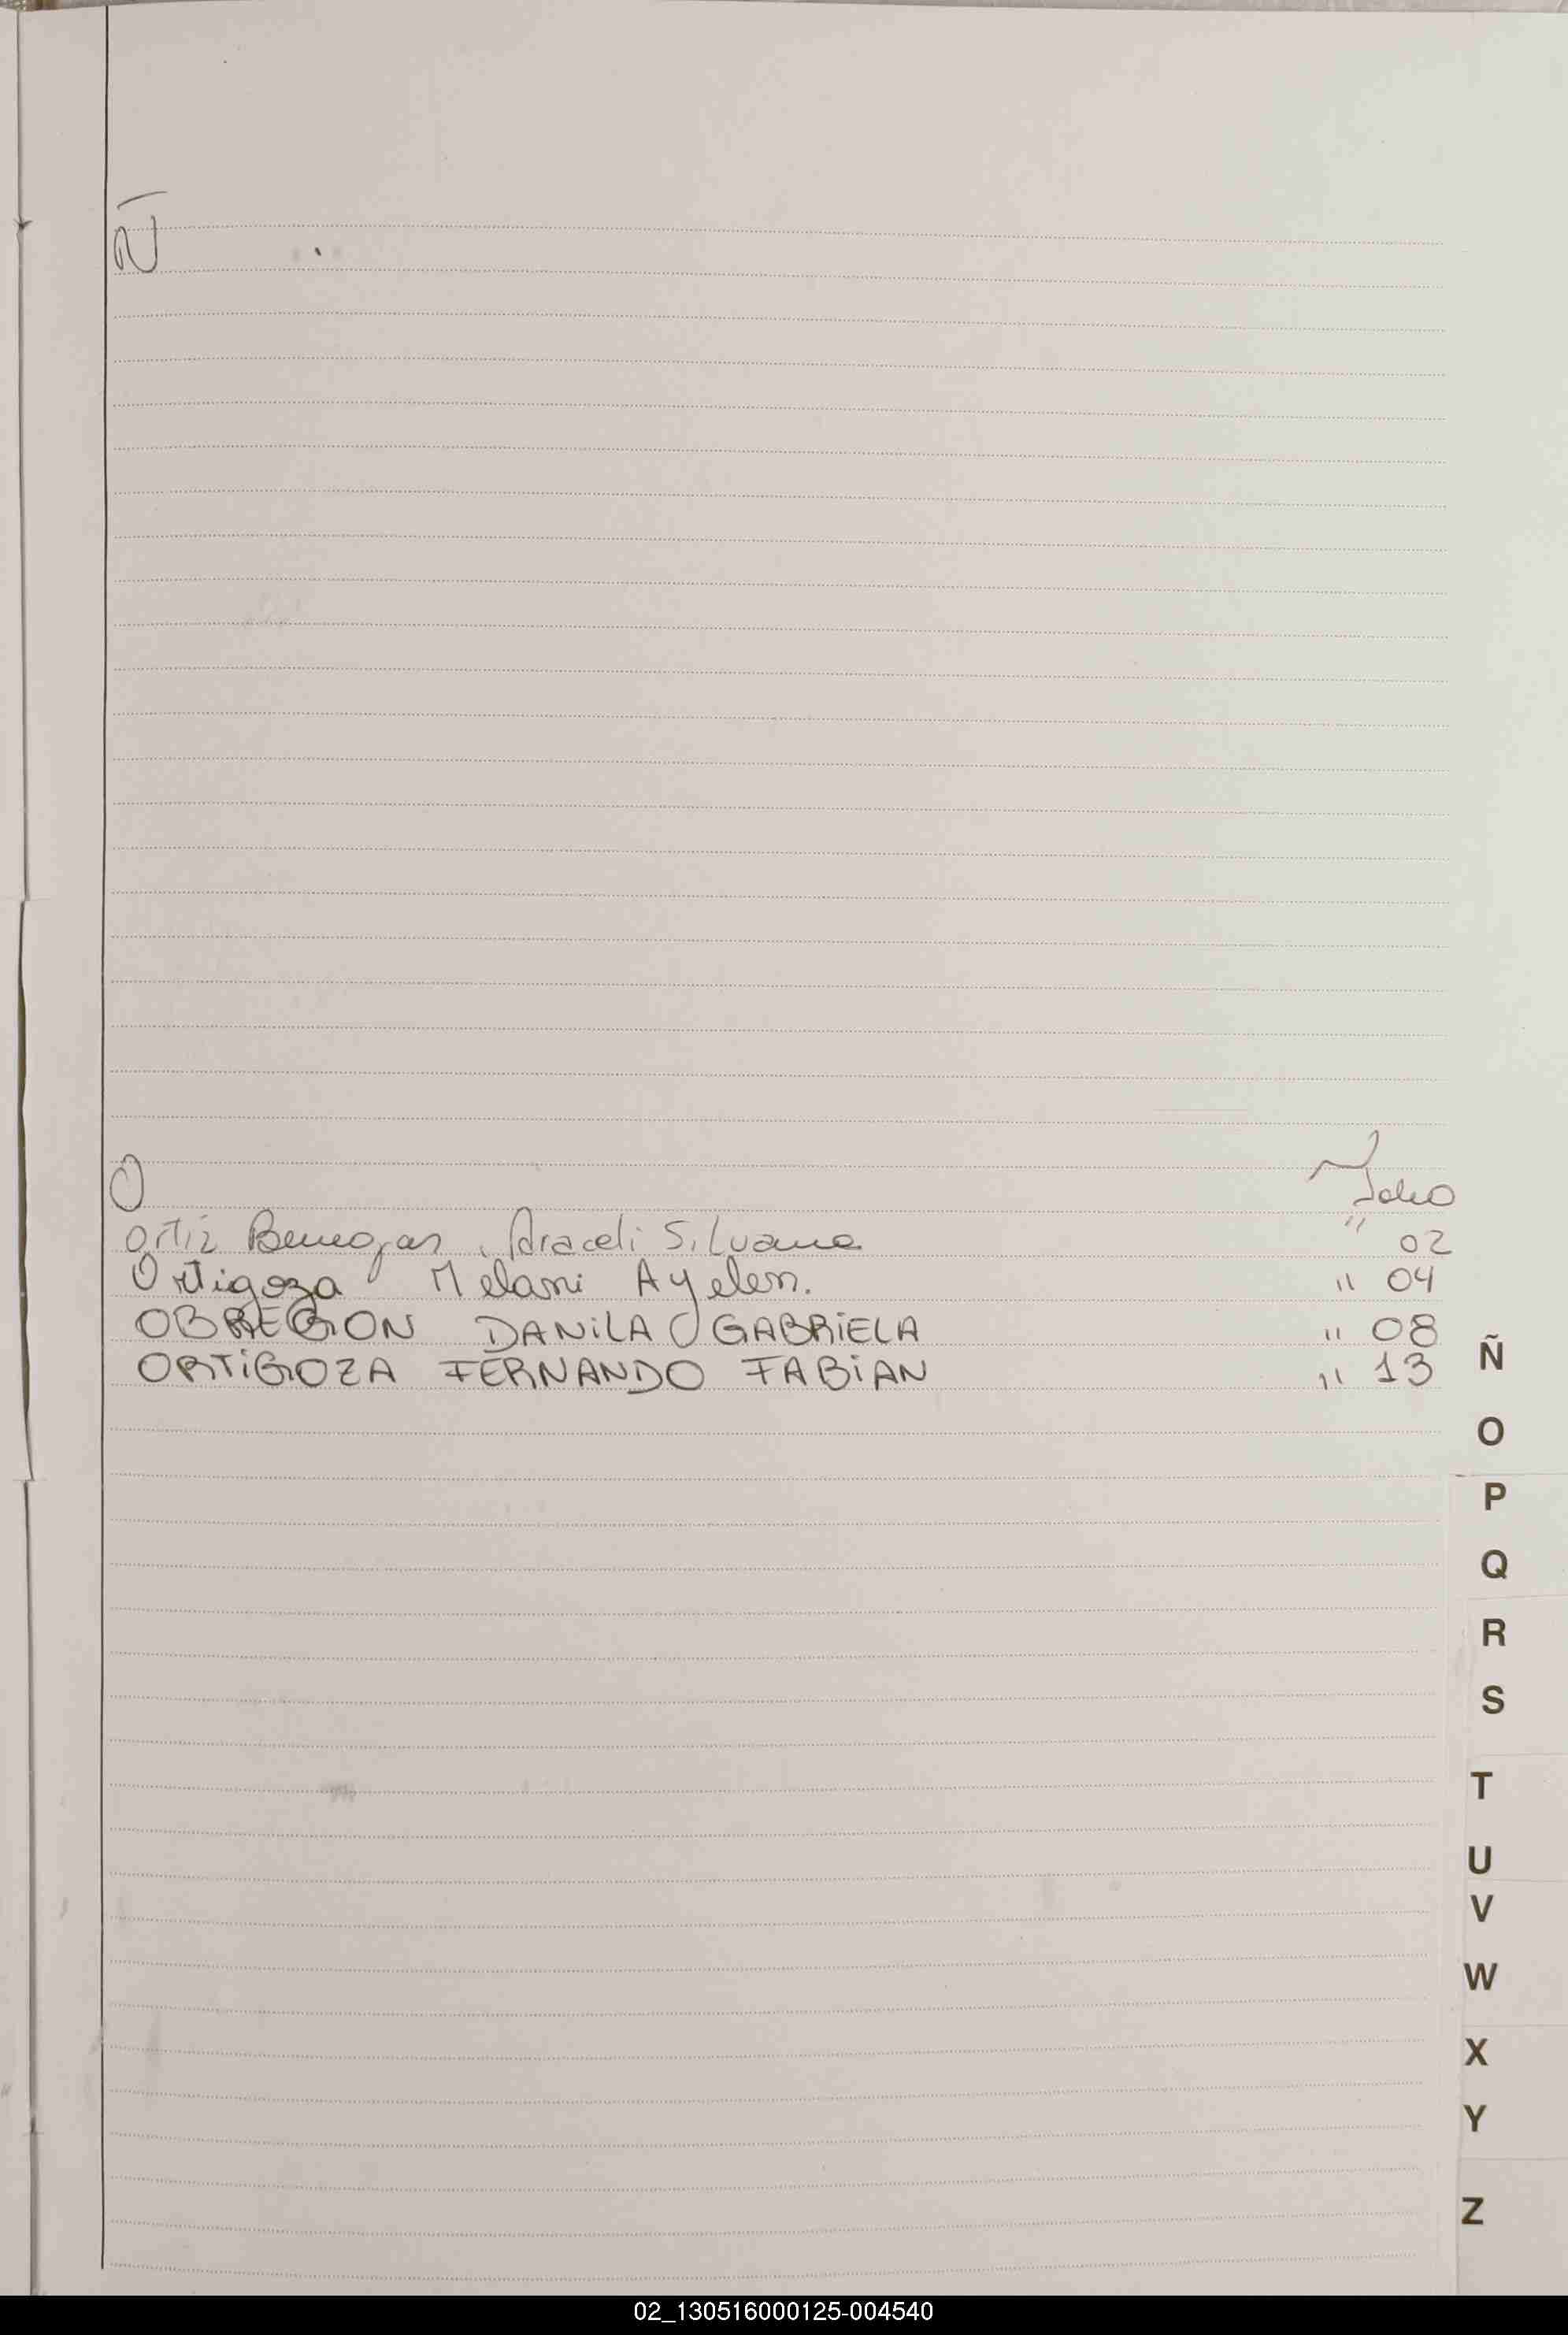 Ñ
O
Folio
Ortiz Benegas, Araceli Silvana " 02
Ortigoza Melani Ayelen. " 04
OBREGON DANILA GABRIELA " 08
ORTIGOZA FERNANDO FABIAN " 13
Ñ
O
P
Q
R
S
T
U
V
W
X
Y
Z
02_130516000125-004540